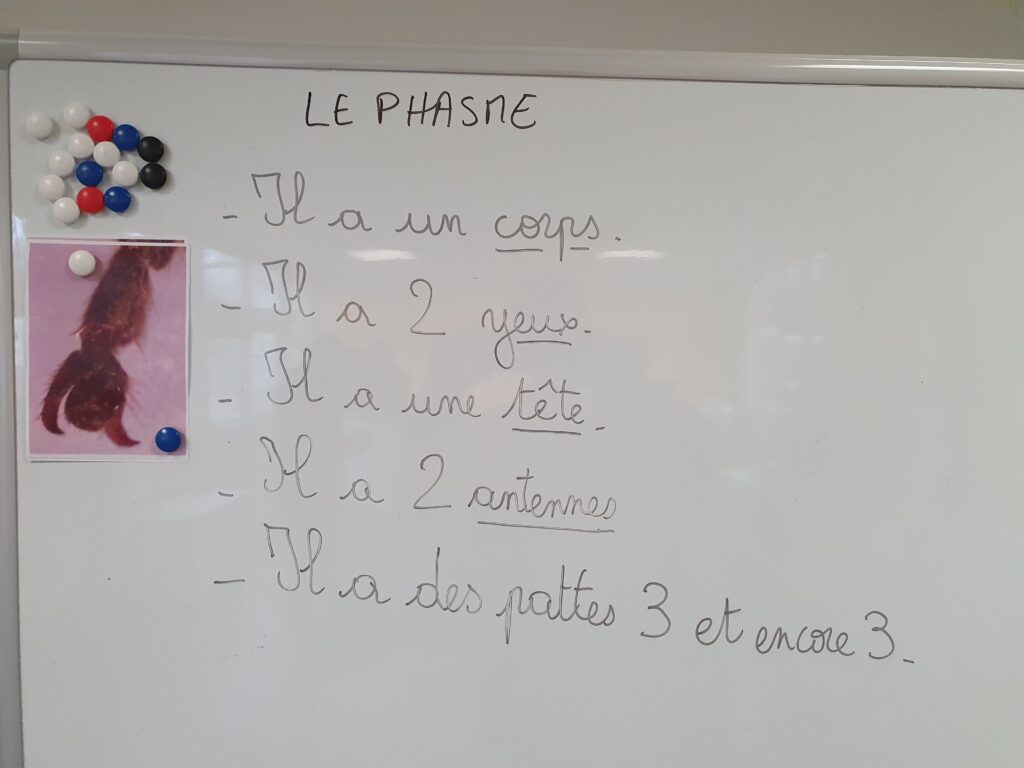 LE PHASME
- Il a un corps.
- Il a 2 yeux.
- Il a une tête.
- Il a 2 antennes
- Il a des pattes 3 et encore 3.